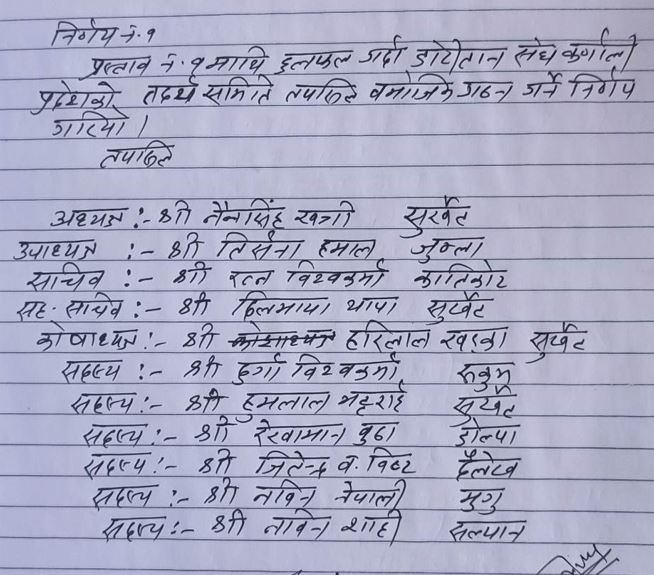 निर्णय नं. १
प्रस्ताव नं. १ माथि छलफल गर्दा होटेलान संघ कर्णाली
प्रदेशको तदर्थ समिति तपछिल वमोजिम गठन गर्ने निर्णय
गरियो ।
तपछिल
अध्यक्ष :- श्री नैनसिंह खत्री सुर्खेत
उपाध्यक्ष :- श्री तिर्सना हमाल जुम्ला
सचिव :- श्री रत्न विश्वकर्मा कालिकोट
सह. सचिव :- श्री दिलमाया थापा सुर्खेत
कोषाध्यक्ष :- श्री हरिलाल खड्का सुर्खेत
सदस्य :- श्री दुर्गा विश्वकर्मा रुकुम
सदस्य :- श्री हुमलाल भट्टराई सुर्खेत
सदस्य :- श्री रेखामान वुढा डोल्पा
सदस्य :- श्री जितेन्द्र व. विष्ट दैलेख
सदस्य :- श्री नविन नेपाली मुगु
सदस्य :- श्री नविन शाही सल्यान